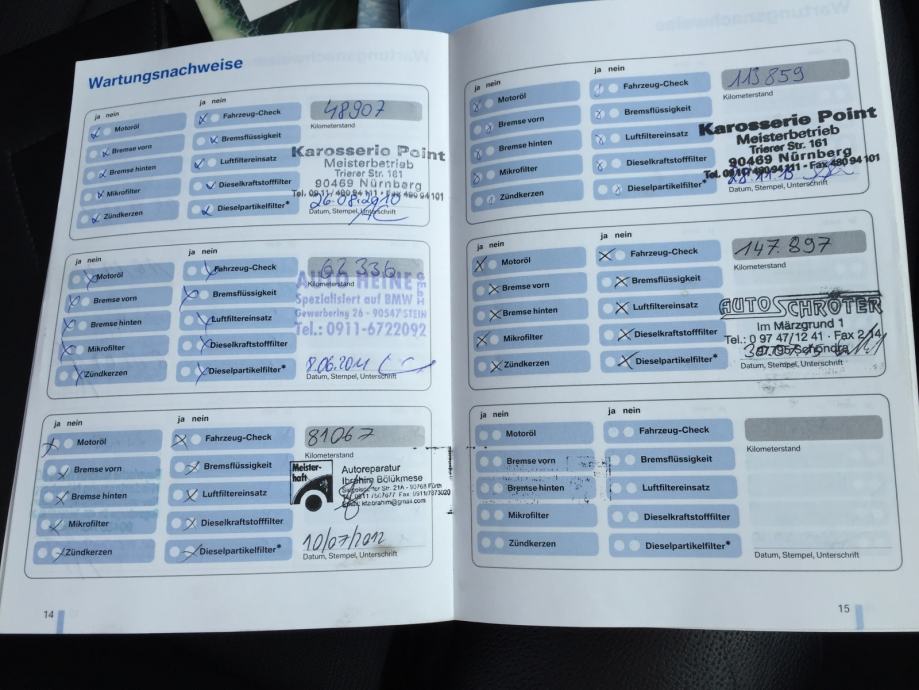 Wartungsnachweise
ja nein
ja nein
48907
Motoröl
Fahrzeug-Check
Kilometerstand
Bremse vorn
Bremsflüssigkeit
Karosserie Point
Bremse hinten
Luftfiltereinsatz
Meisterbetrieb
Trierer Str. 161
Mikrofilter
Dieselkraftstofffilter
90469 Nürnberg
Tel. 0911/490 94 111 · Fax 490 94 101
Zündkerzen
Dieselpartikelfilter*
26.08.2010
Datum, Stempel, Unterschrift
ja nein
ja nein
62 336
Motoröl
Fahrzeug-Check
Kilometerstand
AUTO HEINE GmbH
Bremse vorn
Bremsflüssigkeit
Spezialisiert auf BMW
Bremse hinten
Luftfiltereinsatz
Gewerbering 26 - 90547 STEIN
Tel.: 0911-6722092
Mikrofilter
Dieselkraftstofffilter
Zündkerzen
Dieselpartikelfilter*
8.06.2011
Datum, Stempel, Unterschrift
ja nein
ja nein
81067
Motoröl
Fahrzeug-Check
Kilometerstand
Bremse vorn
Bremsflüssigkeit
Meister-
haft
Autoreparatur
Ibrahim Bölükmese
Bremse hinten
Luftfiltereinsatz
Str. 21A - 90768 Fürth
Mikrofilter
Dieselkraftstofffilter
Zündkerzen
Dieselpartikelfilter*
10/07/2012
Datum, Stempel, Unterschrift
14
ja nein
ja nein
113859
Motoröl
Fahrzeug-Check
Kilometerstand
Bremse vorn
Bremsflüssigkeit
Karosserie Point
Bremse hinten
Luftfiltereinsatz
Meisterbetrieb
Trierer Str. 161
Mikrofilter
Dieselkraftstofffilter
90469 Nürnberg
Tel. 0911/490 94 111 · Fax 490 94 101
Zündkerzen
Dieselpartikelfilter*
Datum, Stempel, Unterschrift
ja nein
ja nein
147.897
Motoröl
Fahrzeug-Check
Kilometerstand
Bremse vorn
Bremsflüssigkeit
AUTO SCHRÖTER
Bremse hinten
Luftfiltereinsatz
Im Märzgrund 1
Mikrofilter
Dieselkraftstofffilter
Tel.: 0 97 47/12 41 - Fax 2 14
97795 Schondra
Zündkerzen
Dieselpartikelfilter*
Datum, Stempel, Unterschrift
ja nein
ja nein
Motoröl
Fahrzeug-Check
Kilometerstand
Bremse vorn
Bremsflüssigkeit
Bremse hinten
Luftfiltereinsatz
Mikrofilter
Dieselkraftstofffilter
Zündkerzen
Dieselpartikelfilter*
Datum, Stempel, Unterschrift
15